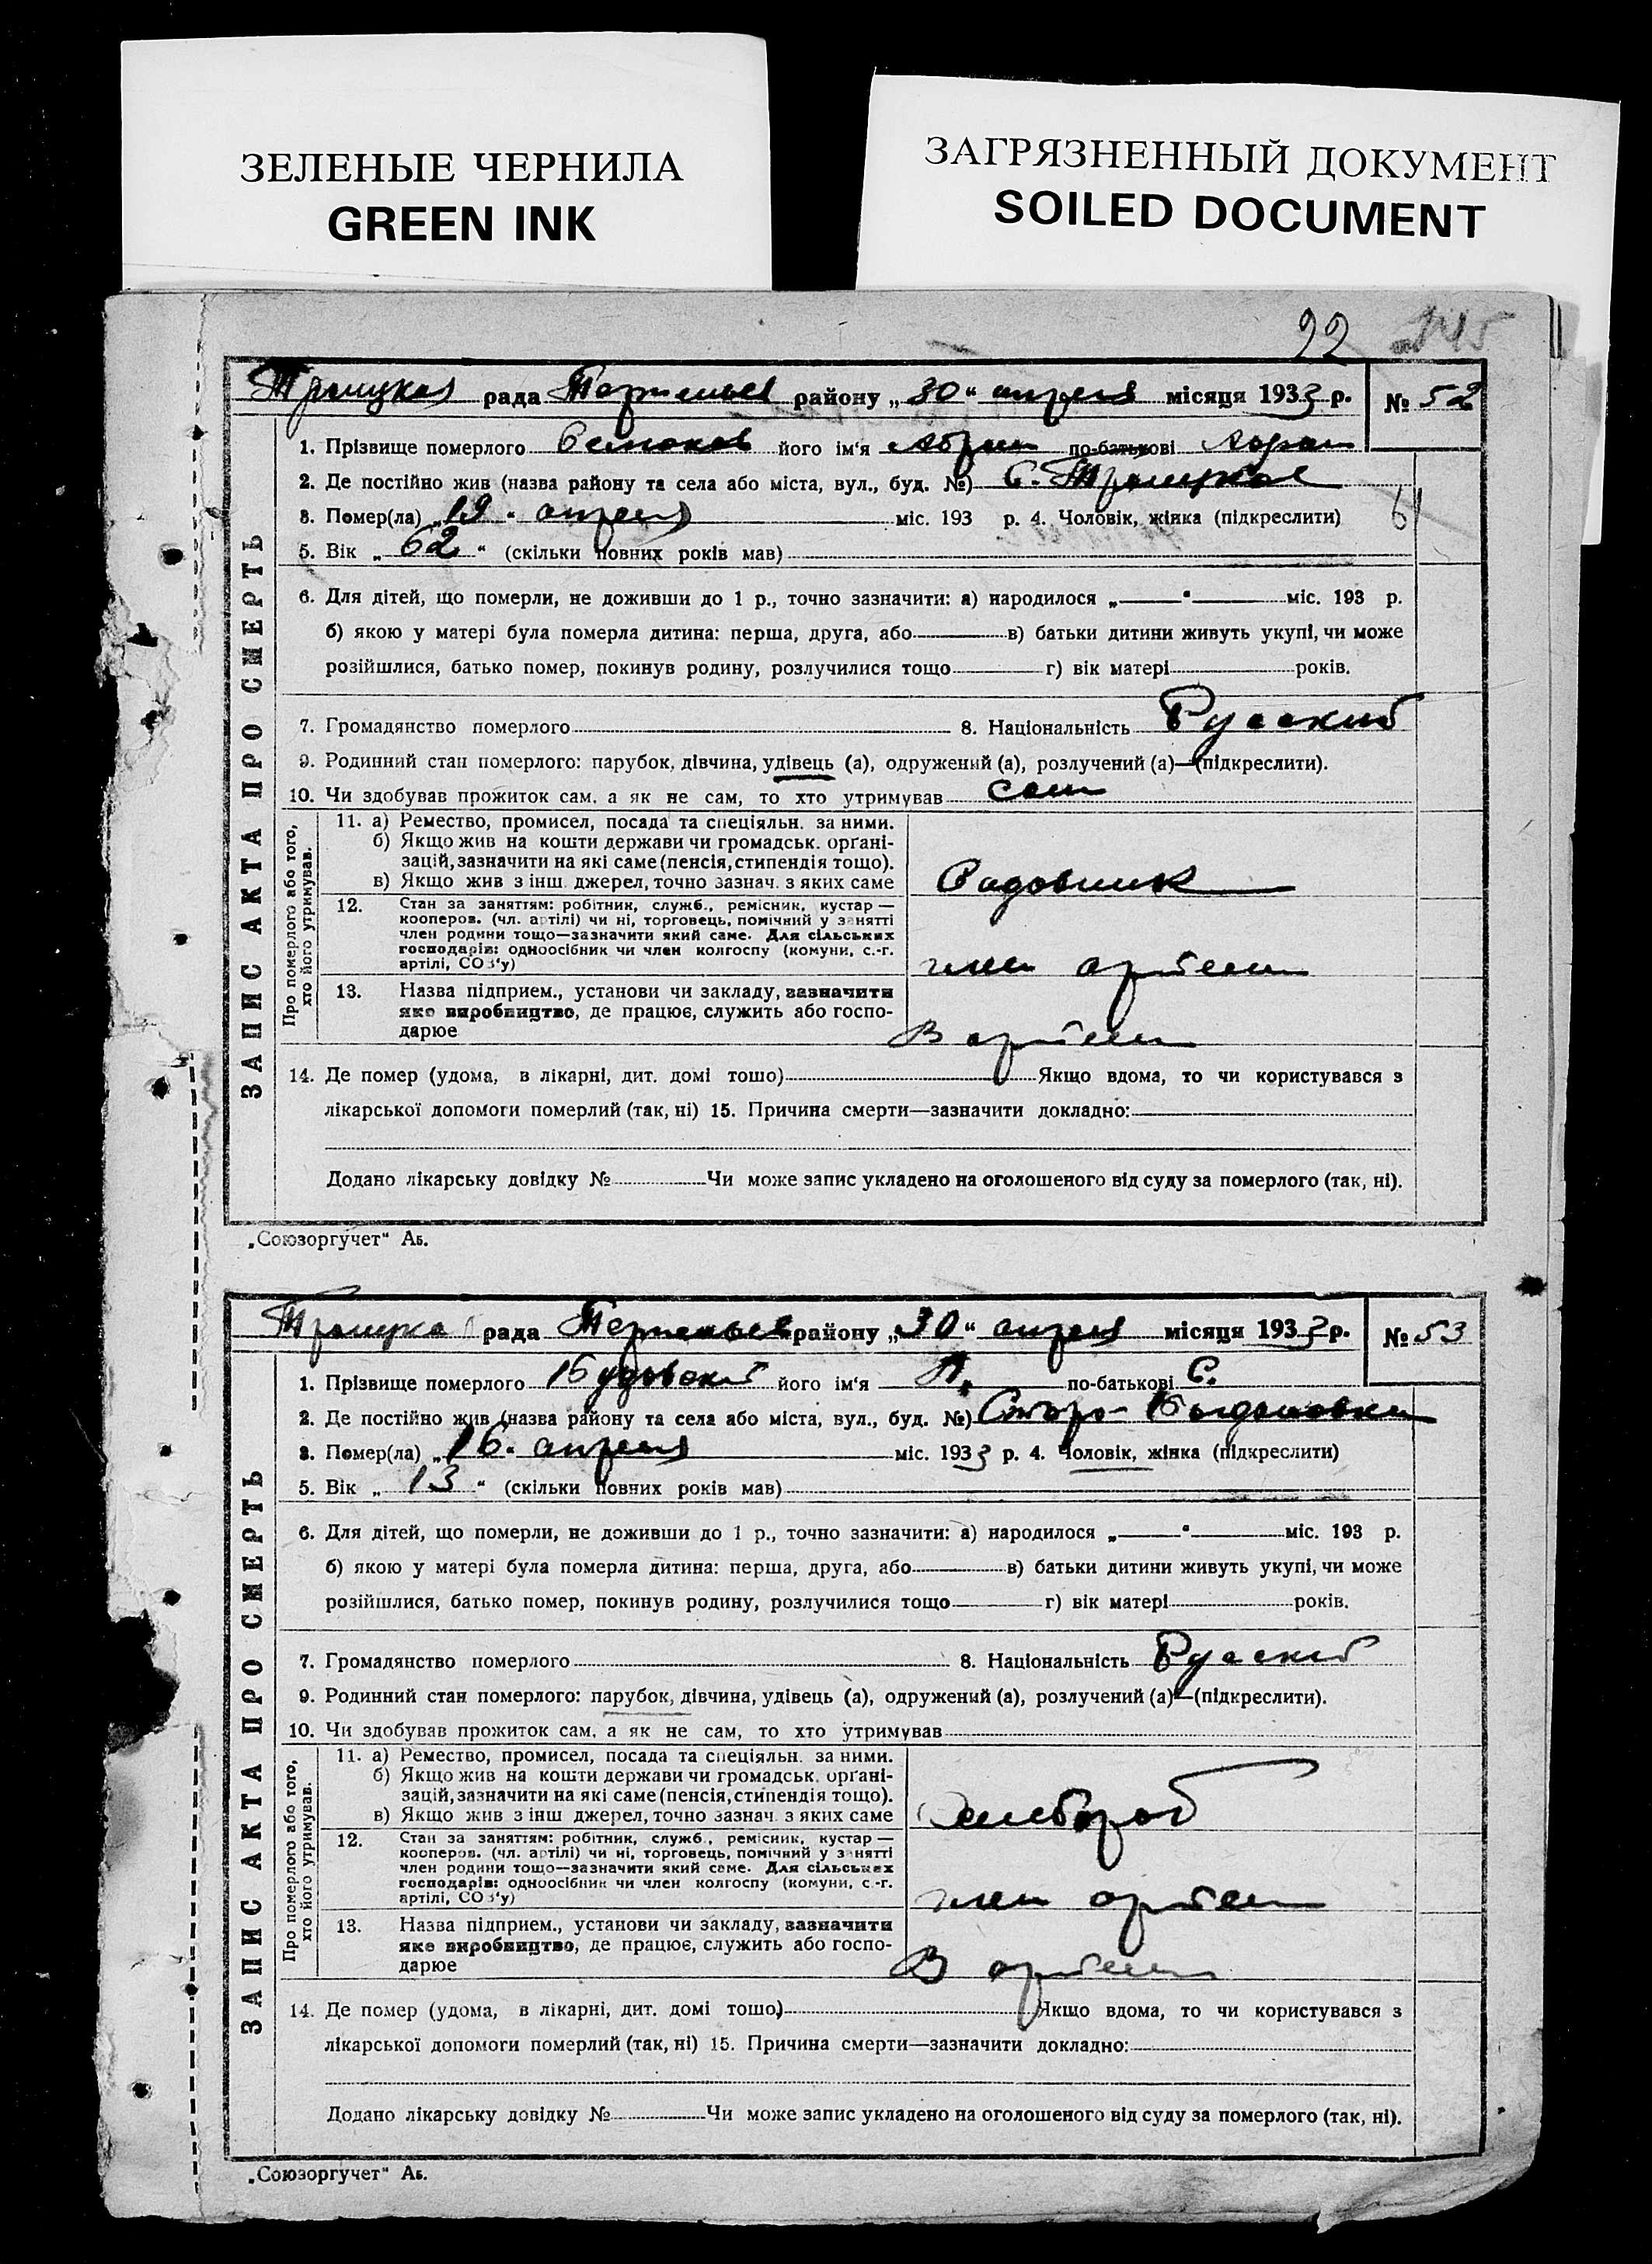 ЗЕЛЕНЫЕ ЧЕРНИЛА
GREEN INK
ЗАГРЯЗНЕННЫЙ ДОКУМЕНТ
SOILED DOCUMENT
92
Троицкая рада району „30“ апреля місяця 1933 р. № 52
1. Прізвище померлого його ім'я по-батькові
2. Де постійно жив (назва району та села або міста, вул., буд. №) С. Троицкое
3. Помер(ла) „19“ апреля міс. 193 р. 4. Чоловік, жінка (підкреслити)
5. Вік „62“ (скільки повних років мав)
6. Для дітей, що померли, не доживши до 1 р., точно зазначити: а) народилося „ “ міс. 193 р.
б) якою у матері була померла дитина: перша, друга, або в) батьки дитини живуть укупі, чи може
розійшлися, батько помер, покинув родину, розлучилися тощо г) вік матері років.
7. Громадянство померлого 8. Національність Русский
9. Родинний стан померлого: парубок, дівчина, удівець (а), одружений (а), розлучений (а)—(підкреслити).
10. Чи здобував прожиток сам, а як не сам, то хто утримував сам
11. а) Ремество, промисел, посада та спеціяльн. за ними.
б) Якщо жив на кошти держави чи громадськ. органі-
зацій, зазначити на які саме (пенсія, стипендія тощо).
в) Якщо жив з інш. джерел, точно зазнач. з яких саме
Садовник
12. Стан за заняттям: робітник, служб., ремісник, кустар —
кооперов. (чл. артілі) чи ні, торговець, помічний у занятті
член родини тощо—зазначити який саме. Для сільських
господарів: одноосібник чи член колгоспу (комуни, с.-г.
артілі, СОЗ'у)
член артели
13. Назва підприєм., установи чи закладу, зазначити
яке виробництво, де працює, служить або госпо-
дарює
В артели
14. Де помер (удома, в лікарні, дит. домі тощо) Якщо вдома, то чи користувався з
лікарської допомоги померлий (так, ні) 15. Причина смерти—зазначити докладно:
Додано лікарську довідку № Чи може запис укладено на оголошеного від суду за померлого (так, ні).
ЗАПИС АКТА ПРО СМЕРТЬ
Про померлого або того,
хто його утримував.
„Союзоргучет“ Аб.
рада району „30“ апреля місяця 1933 р. № 53
1. Прізвище померлого Будовский його ім'я П. по-батькові С.
2. Де постійно жив (назва району та села або міста, вул., буд. №) Старо-Богдановка
3. Помер(ла) „16“ апреля міс. 1933 р. 4. Чоловік, жінка (підкреслити)
5. Вік „13“ (скільки повних років мав)
6. Для дітей, що померли, не доживши до 1 р., точно зазначити: а) народилося „ “ міс. 193 р.
б) якою у матері була померла дитина: перша, друга, або в) батьки дитини живуть укупі, чи може
розійшлися, батько помер, покинув родину, розлучилися тощо г) вік матері років.
7. Громадянство померлого 8. Національність Русский
9. Родинний стан померлого: парубок, дівчина, удівець (а), одружений (а), розлучений (а)—(підкреслити).
10. Чи здобував прожиток сам, а як не сам, то хто утримував
11. а) Ремество, промисел, посада та спеціяльн. за ними.
б) Якщо жив на кошти держави чи громадськ. органі-
зацій, зазначити на які саме (пенсія, стипендія тощо).
в) Якщо жив з інш. джерел, точно зазнач. з яких саме
12. Стан за заняттям: робітник, служб., ремісник, кустар —
кооперов. (чл. артілі) чи ні, торговець, помічний у занятті
член родини тощо—зазначити який саме. Для сільських
господарів: одноосібник чи член колгоспу (комуни, с.-г.
артілі, СОЗ'у)
член артели
13. Назва підприєм., установи чи закладу, зазначити
яке виробництво, де працює, служить або госпо-
дарює
В артели
14. Де помер (удома, в лікарні, дит. домі тощо) Якщо вдома, то чи користувався з
лікарської допомоги померлий (так, ні) 15. Причина смерти—зазначити докладно:
Додано лікарську довідку № Чи може запис укладено на оголошеного від суду за померлого (так, ні).
ЗАПИС АКТА ПРО СМЕРТЬ
Про померлого або того,
хто його утримував.
„Союзоргучет“ Аб.